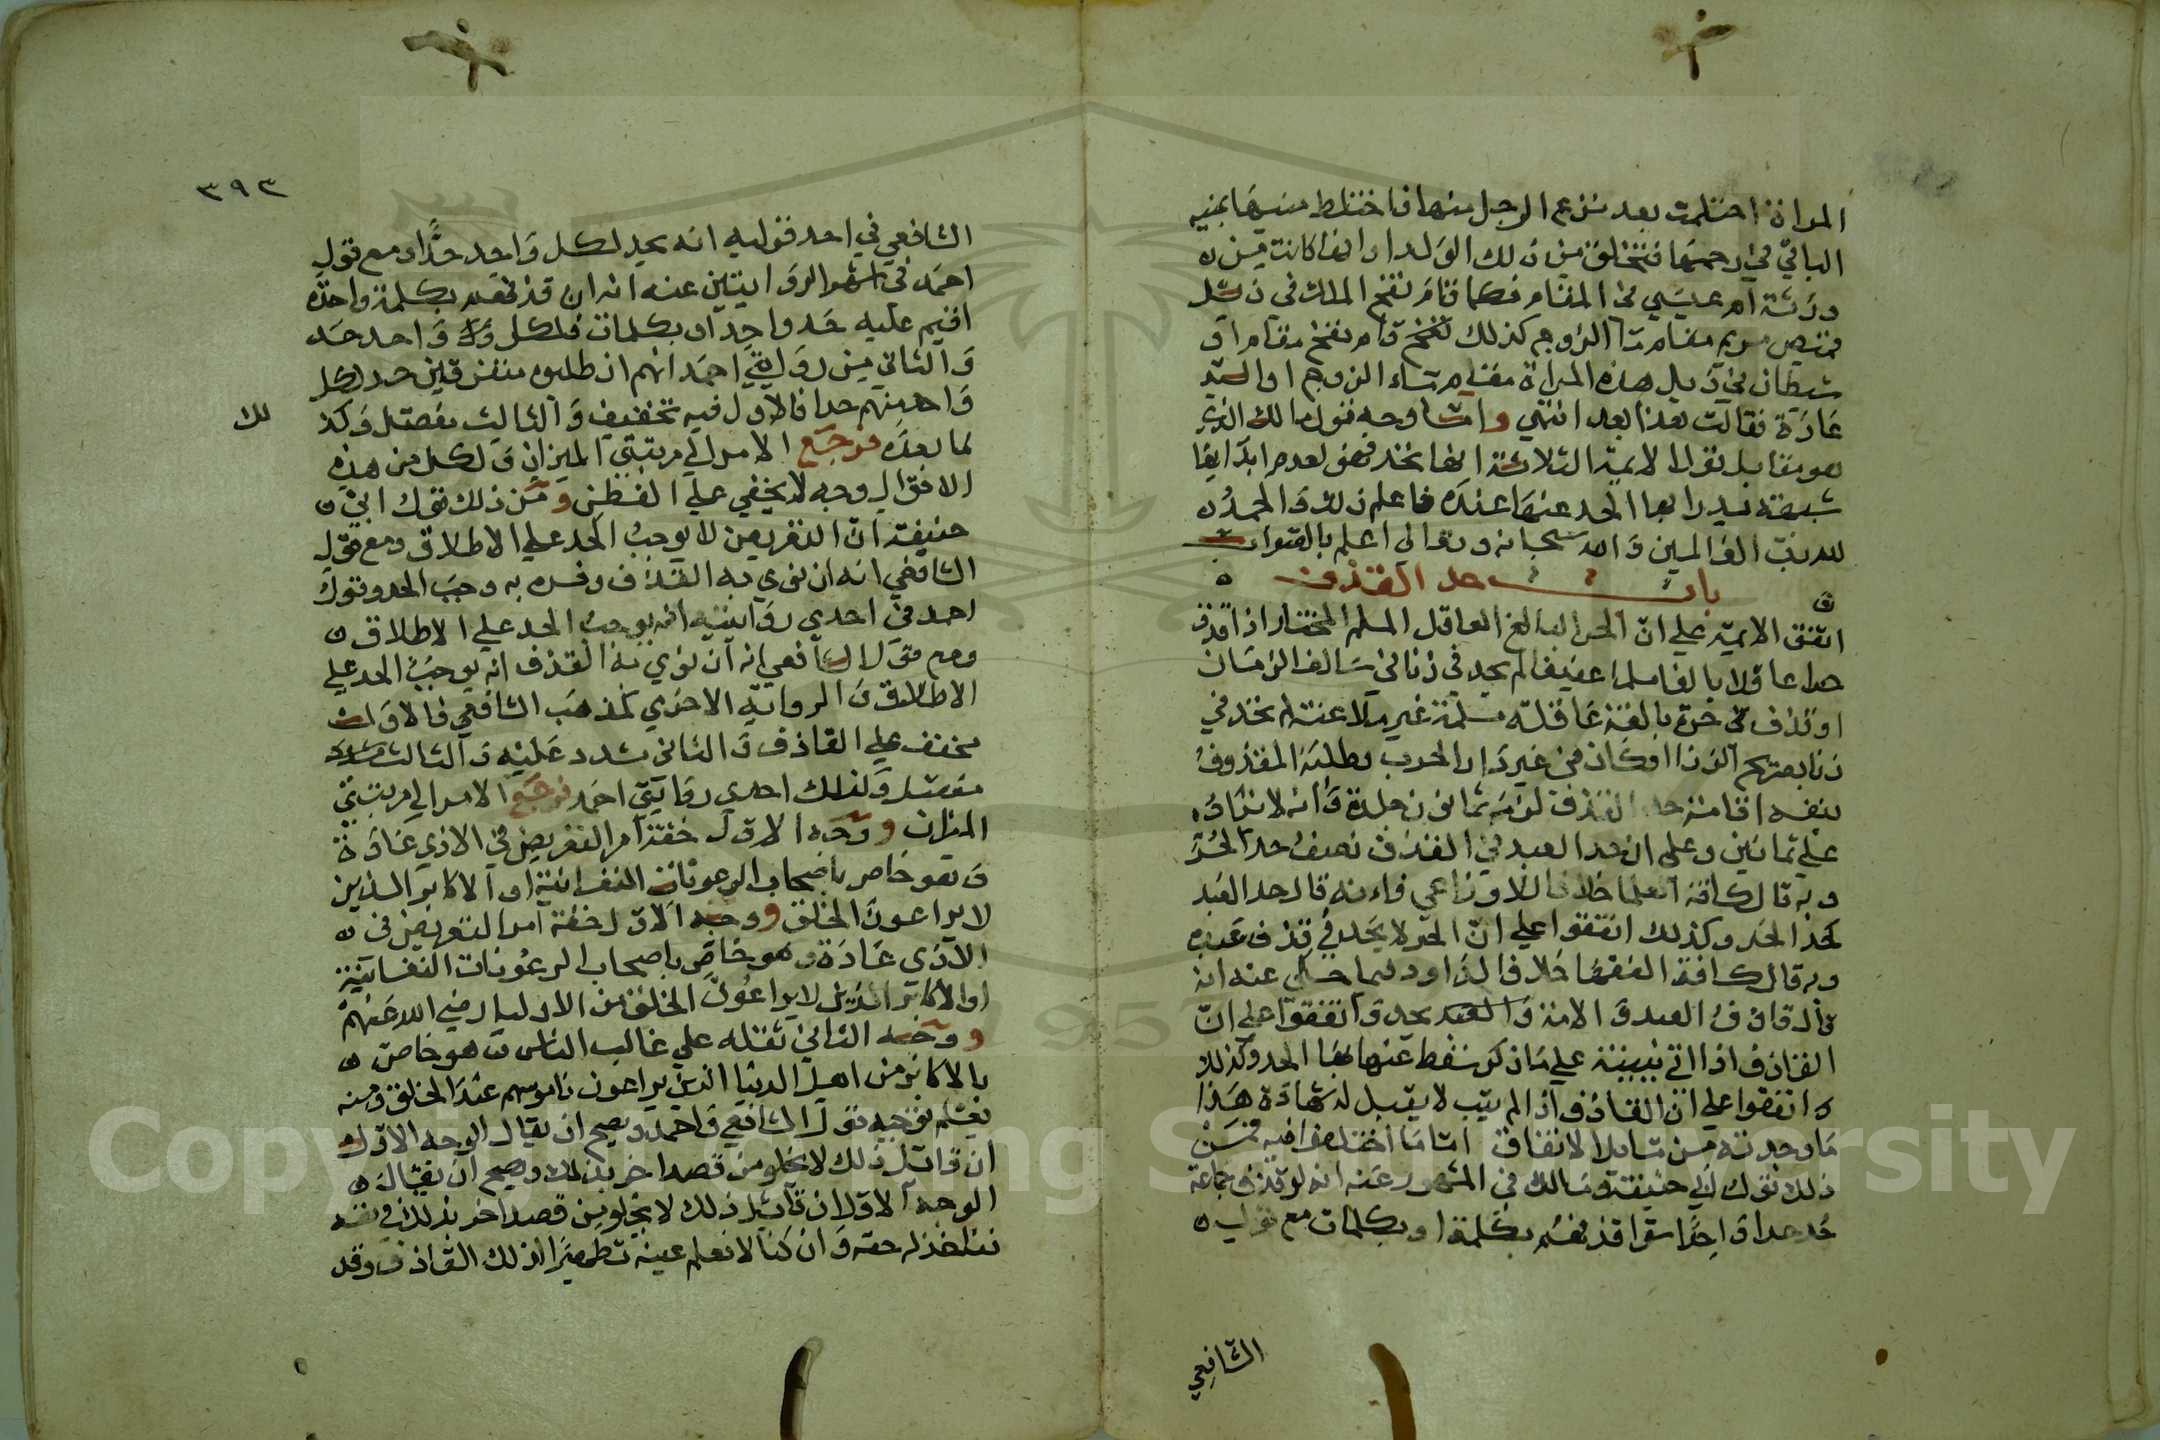 المراة احتلمت بعد نزع الرجل منها فاختلط منيها بمنيه
الباقي في رحمها فتخلق من ذلك الولد او انها كانت من
ورثة ام عيسي في المقام فكما قام نفخ الملك في ذيل
قميص مريم مقام ماء الزوج كذلك نفخ قام نفخ مقام او
شيطان في ذيل هذه المراة مقام ماء الزوج او السيد
عادة فقالت هذا بعد انتهي واما وجه قول مالك الذي
هو مقابل قول الايمة الثلاثة انها تحد فهو لعدم ابدائها
شبهة يدرا بها الحد عنها عنده فاعلم ذلك والحمد
لله رب العالمين والله سبحانه وتعالي اعلم بالصواب
باب حد القذف
اتفق الايمة علي ان الحر البالغ العاقل المسلم المختار اذا قذف
حرا عاقلا بالغا مسلما عفيفا لم يحد في زنا في سالف الزمان
او قذف حرة بالغة عاقلة مسلمة غير ملاعنة لم تحد في
زنا بصريح الزنا وكان في غير دار الحرب وطلب المقذوف
بنفسه اقامة حد القذف لزمه ثمانون جلدة وانه لا يزاد
علي ثمانين وعلي ان حد العبد في القذف نصف حد الحر
وبه قال كافة العلما خلافا للاوزاعي فانه قال حد العبد
كحد الحر وكذلك اتفقوا علي ان الحر لا يحد في قذف عبده
وبه قال كافة الفقها خلافا لداود فيما حكي عنه انه
قال قاذف العبد والامة والعبد يحد واتفقوا علي ان
القاذف اذا اتي ببينة علي ما ذكر سقط عنه الحد وكذلك
اتفقوا علي ان القاذف اذا لم يتب لا يقبل له شهادة هذا
ما وجدته من مسايل الاتفاق اما ما اختلفوا فيه فمن
ذلك قول ابي حنيفة ومالك في المشهور عنه انه لو قذف جماعة
حد حدا واحدا سوا قذفهم بكلمة او بكلمات مع قول
الشافعي
٣٩٣
الشافعي في احد قوليه انه يحد لكل واحد حدا ومع قول
احمد في اشهر الروايتين عنه انه ان قذفهم بكلمة واحدة
اقيم عليه حد واحد او بكلمات فلكل واحد حد
والثاني من روايتي احمد انهم ان طلبوه متفرقين حد لكل
واحد منهم حدا فالاول فيه تخفيف والثالث مفصل وكذ
لك
لما بعده فرجع الامر الي مرتبتي الميزان ولكل من هذه
الاقوال وجه لا يخفي علي الفطن ومن ذلك قول ابي
حنيفة ان التعريض لا يوجب الحد علي الاطلاق ومع قول
الشافعي انه ان نوي به القذف وفسره به وجب الحد وقول
احمد في احدي روايتيه انه يوجب الحد علي الاطلاق
ومع قول الشافعي انه ان نوي به القذف انه يوجب الحد علي
الاطلاق والرواية الاخري كمذهب الشافعي فالاول
مخفف علي القاذف والثاني مشدد عليه والثالث
مفصل وكذلك احدي روايتي احمد فرجع الامر الي مرتبتي
الميزان ووجه الاول خفة امر التعريض في الاذي عادة
وهو خاص باصحاب الرعونات النفسانية او الاكابر الذين
لا يراعون الخلق ووجه الاول خفة امر التعريض في
الاذي عادة وهو خاص باصحاب الرعونات النفسانية
او الاكابر الذين لا يراعون الخلق من الاوليا رضي الله عنهم
ووجه الثاني ثقله علي غالب الناس وهو خاص
بالاكابر من اهل الدنيا الذين يراعون ناموسهم عند الخلق ومنه
يعلم توجيه قول الشافعي واحمد ويصح ان يقال الوجه الاول
ان قائل ذلك لا يخلو من قصد اخر بذلك ويصح ان يقال
الوجه الاول ان قائل ذلك لا يخلو من قصد اخر بذلك في نفسه
فناخذ له حقه وان كنا لا نعلم عينه تطهيرا لذلك القاذف وقد